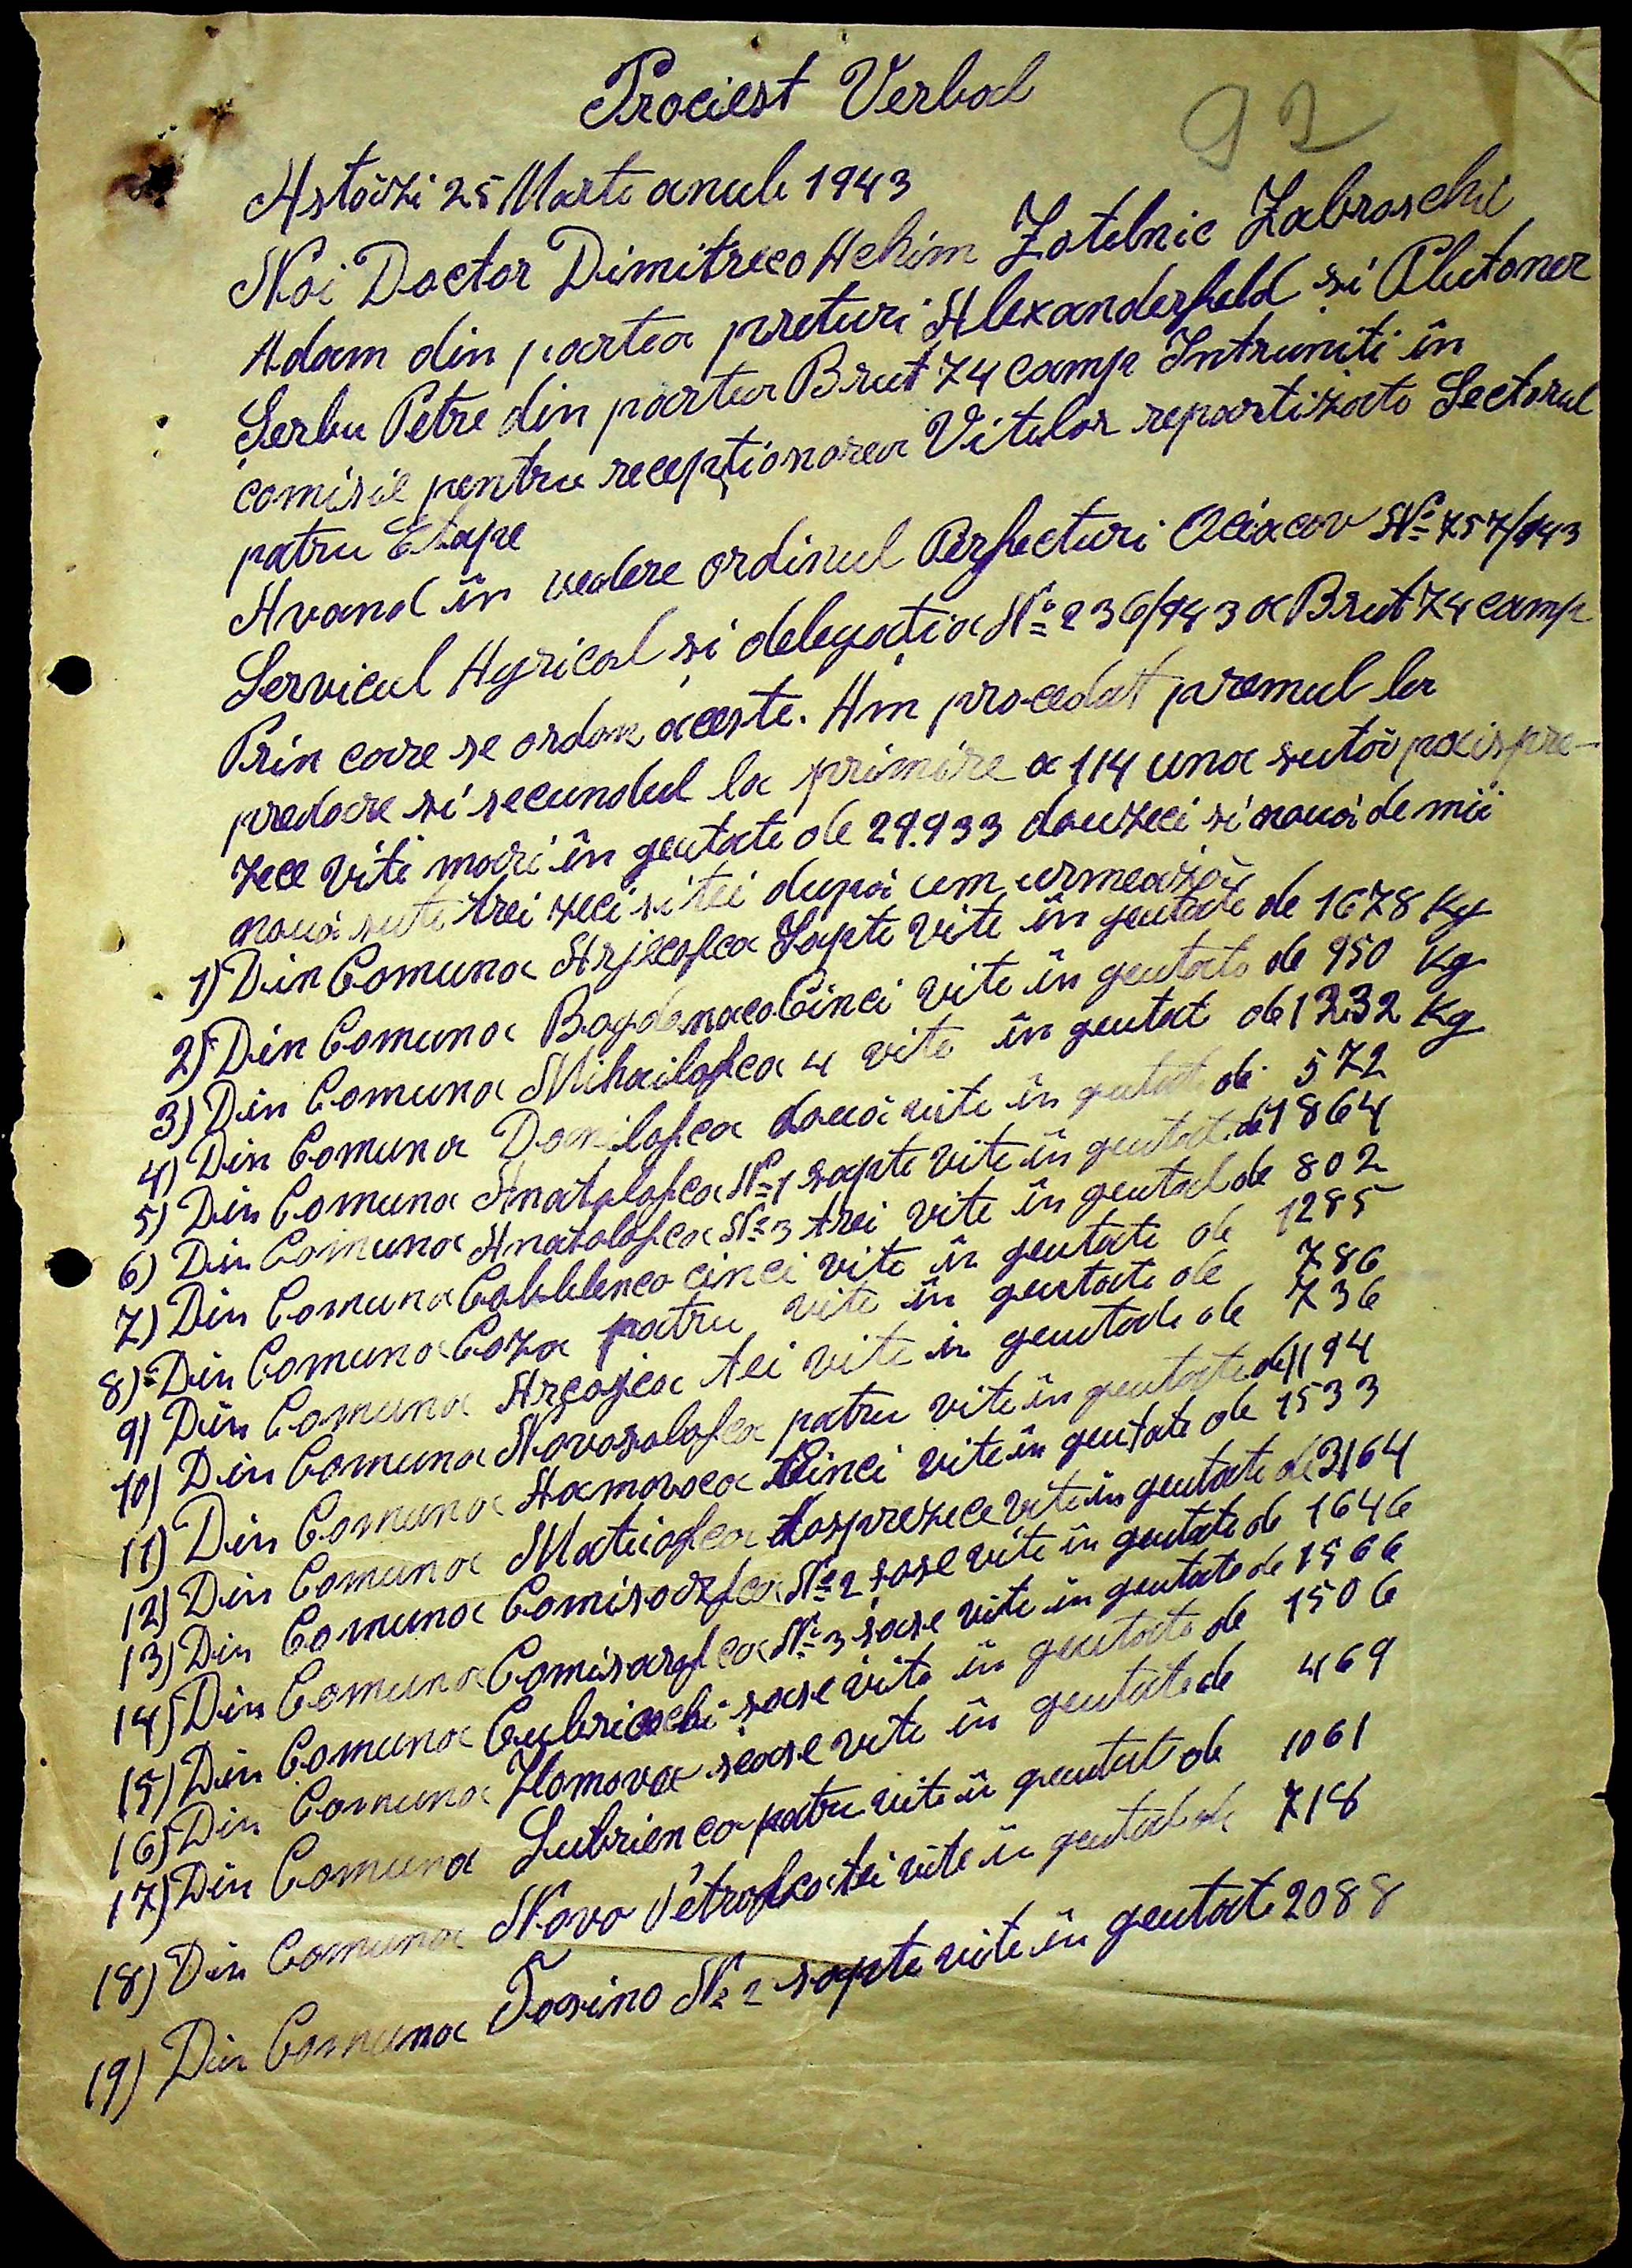 Prociest Verbal
92
Astăzi 25 Marte anule 1943
Noi Doctor Dimitreco Achim Zatelnic Zabraschi
Adam din partea preturi Alexanderfeld si Plutoner
Serbu Petre din partea Brut 74 camp Intruniti în
comisie pentru recepționarea Vitelor repartizate Sectorul
patru Etape
Avand în vedere ordinul Perfecturi Oceacov № 757/943
Servicul Agricol și delegația № 236/943 a Brut 74 camp
Prin care se ordon aceste. Am procedat premul la
predare si secundul la primire a 114 una sută paispre-
zece vite mari în geutate de 29.933 douzeci si nouă de mii
nouă sute trei zeci si tei după cum urmează
1) Din Comuna Șapte vite în geutate de 1678 Kg
2) Din Comuna Bogdanaco Cinci vite în geutate de 950 Kg
3) Din Comuna Mihailofca 4 vite în geutat de 1232 Kg
4) Din Comuna Danilofca două vite în geutate de 572
5) Din Comuna Anatolofca № 1 sapte vite în geutate de 1864
6) Din Comuna Anatolofca № 3 trei vite în geutat de 802
7) Din Comuna cinci vite în geutate de 1285
8) Din Comuna Coza patru vite în geutate de 786
9) Din Comuna tei vite în geutate de 736
10) Din Comuna Novosolofca patru vite în geutate de 1194
11) Din Comuna Hamovca Cinci vite în geutate de 1533
12) Din Comuna Matiofca dosprezece vite în geutate de 3164
13) Din Comuna Comisarofca № 2 sase vite în geutate de 1646
14) Din Comuna Comisarofca № 3 sase vite în geutate de 1566
15) Din Comuna Cubriachi sase vite în geutate de 1506
16) Din Comuna sease vite în geutate de 469
17) Din Comuna Lubrienco patru vite în geutat de 1061
18) Din Comuna Novo Petrofca tei vite în geutat de 718
19) Din Comuna Tasino № 2 sapte vite în geutate 2088